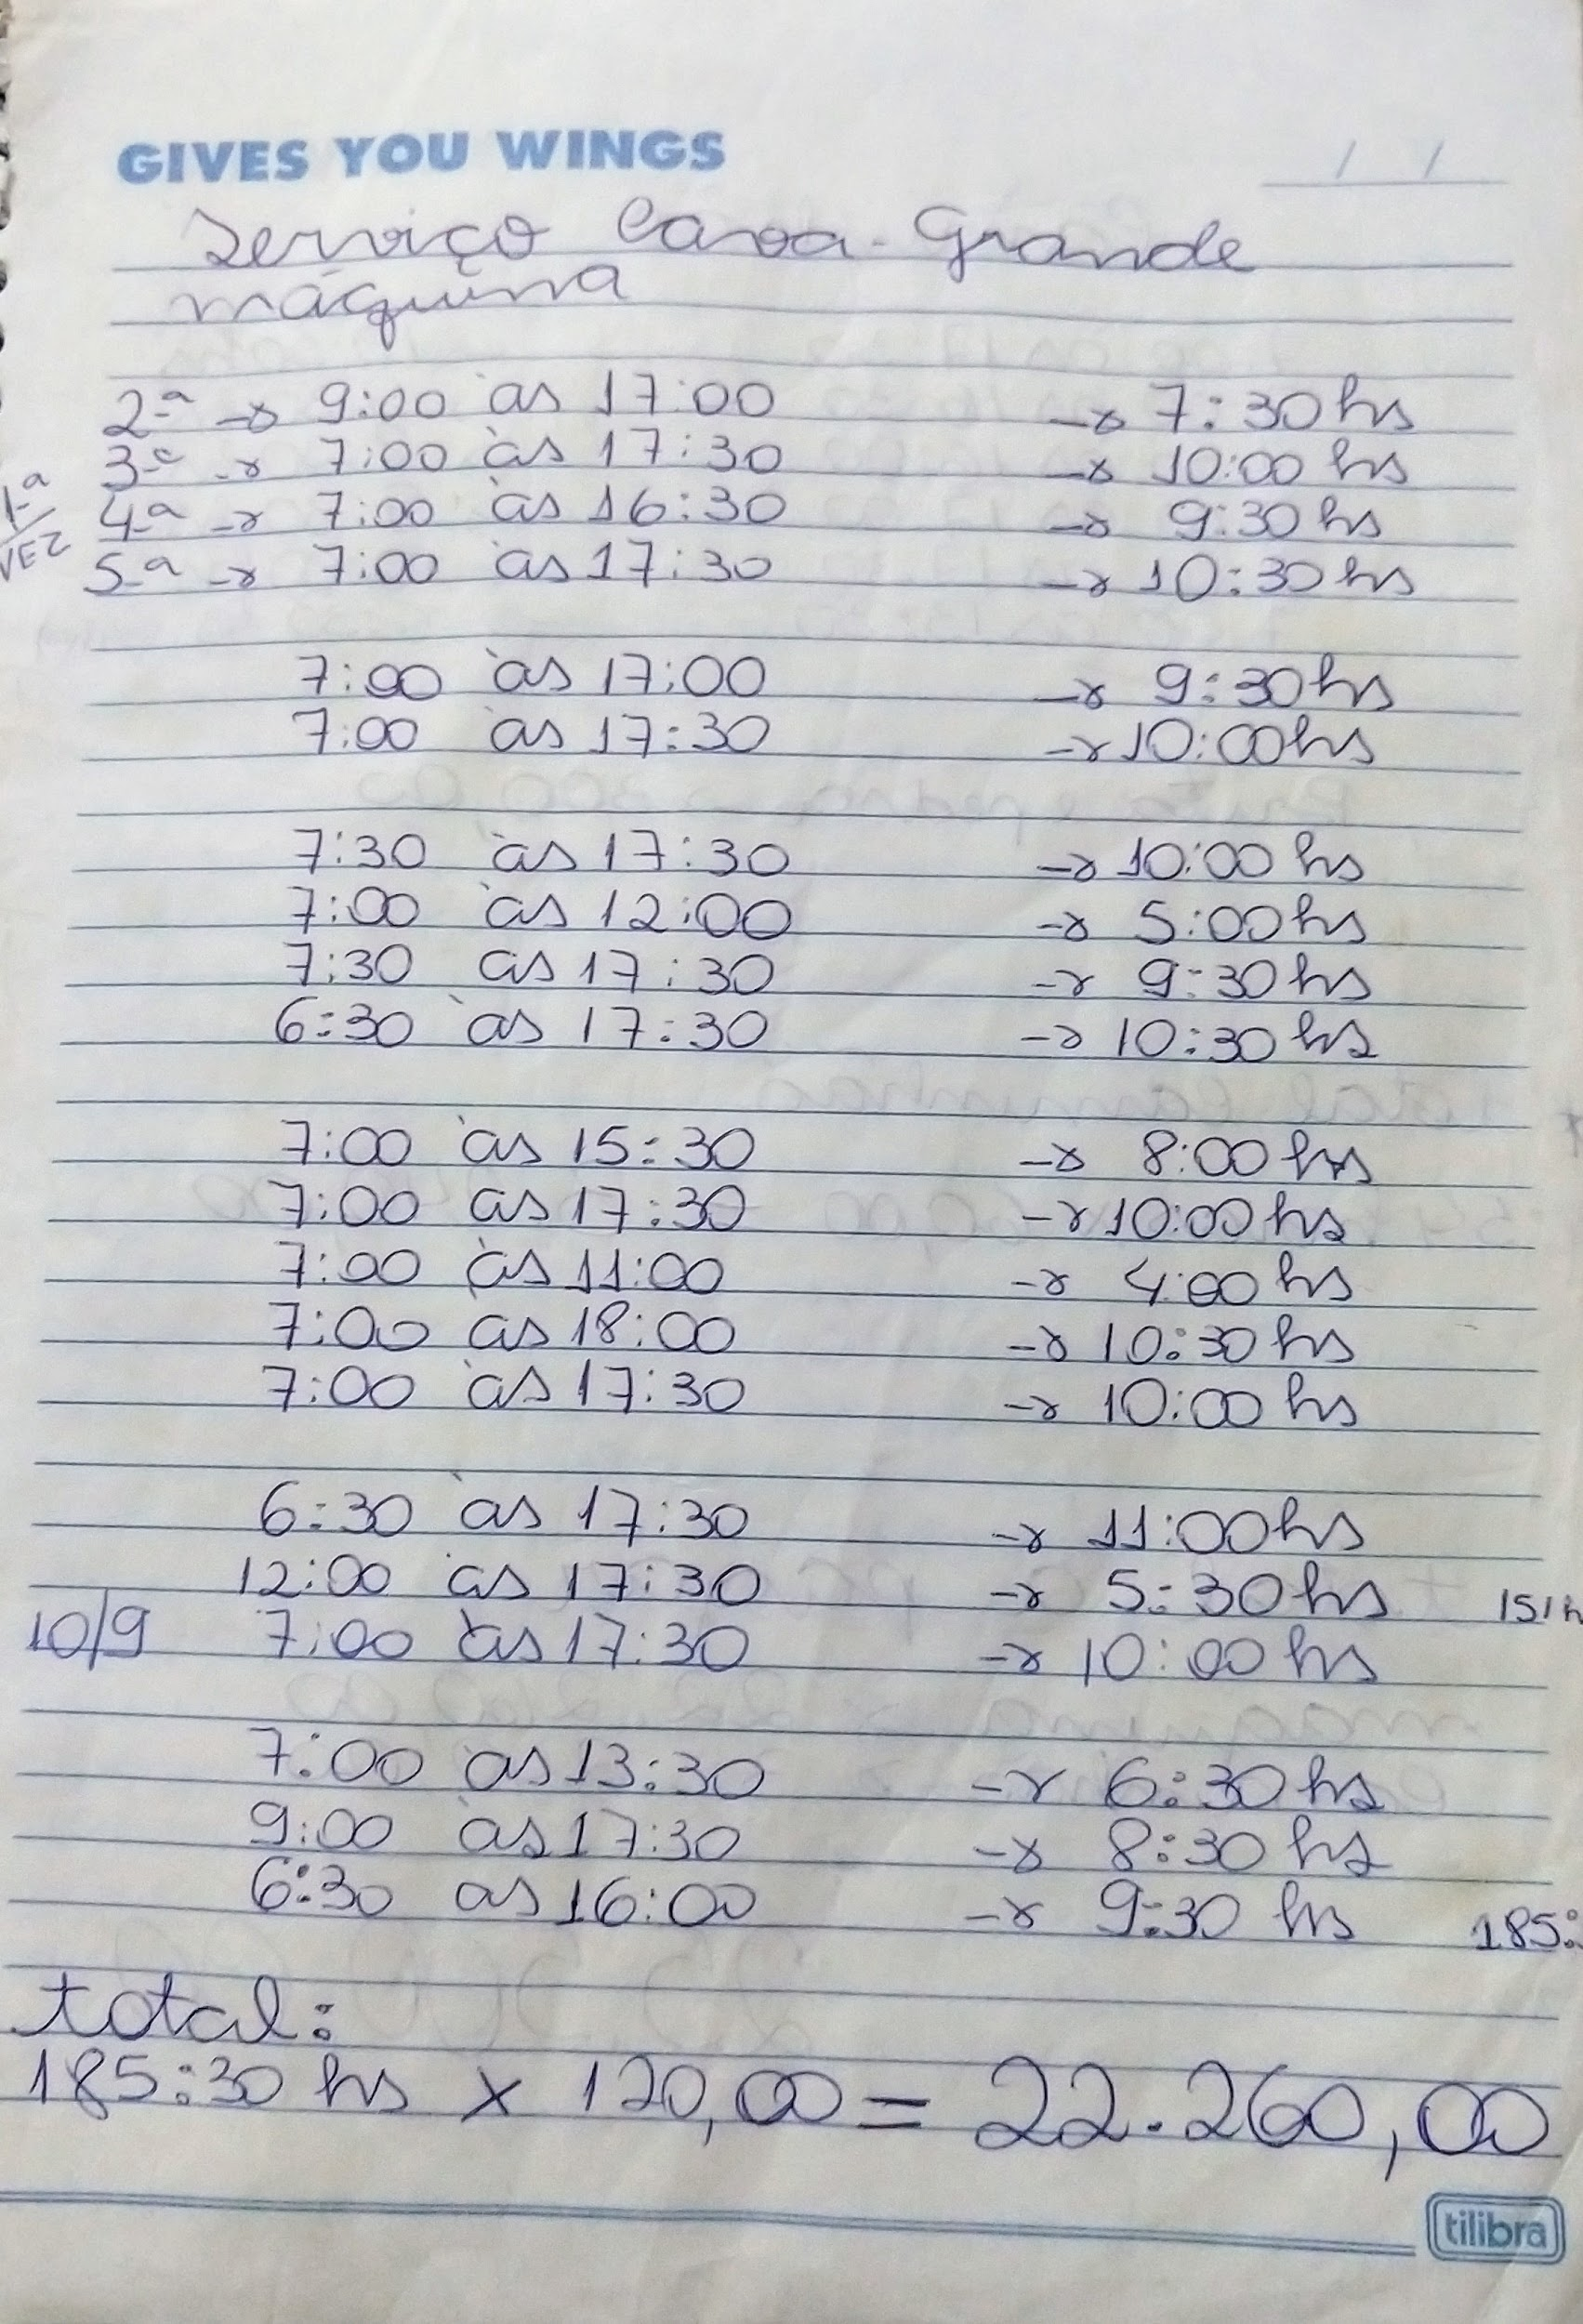 GIVES YOU WINGS / /
Serviço Cava-Grande
máquina
2ª → 9:00 às 17:00 → 7:30 hs
3ª → 7:00 às 17:30 → 10:00 hs
1ª VEZ 4ª → 7:00 às 16:30 → 9:30 hs
5ª → 7:00 às 17:30 → 10:30 hs
7:00 às 17:00 → 9:30 hs
7:00 às 17:30 → 10:00 hs
7:30 às 17:30 → 10:00 hs
7:00 às 12:00 → 5:00 hs
7:30 às 17:30 → 9:30 hs
6:30 às 17:30 → 10:30 hs
7:00 às 15:30 → 8:00 hs
7:00 às 17:30 → 10:00 hs
7:00 às 11:00 → 4:00 hs
7:00 às 18:00 → 10:30 hs
7:00 às 17:30 → 10:00 hs
6:30 às 17:30 → 11:00 hs
12:00 às 17:30 → 5:30 hs 151h
10/9 7:00 às 17:30 → 10:00 hs
7:00 às 13:30 → 6:30 hs
9:00 às 17:30 → 8:30 hs
6:30 às 16:00 → 9:30 hs 185:
total:
185:30 hs x 120,00 = 22.260,00
tilibra